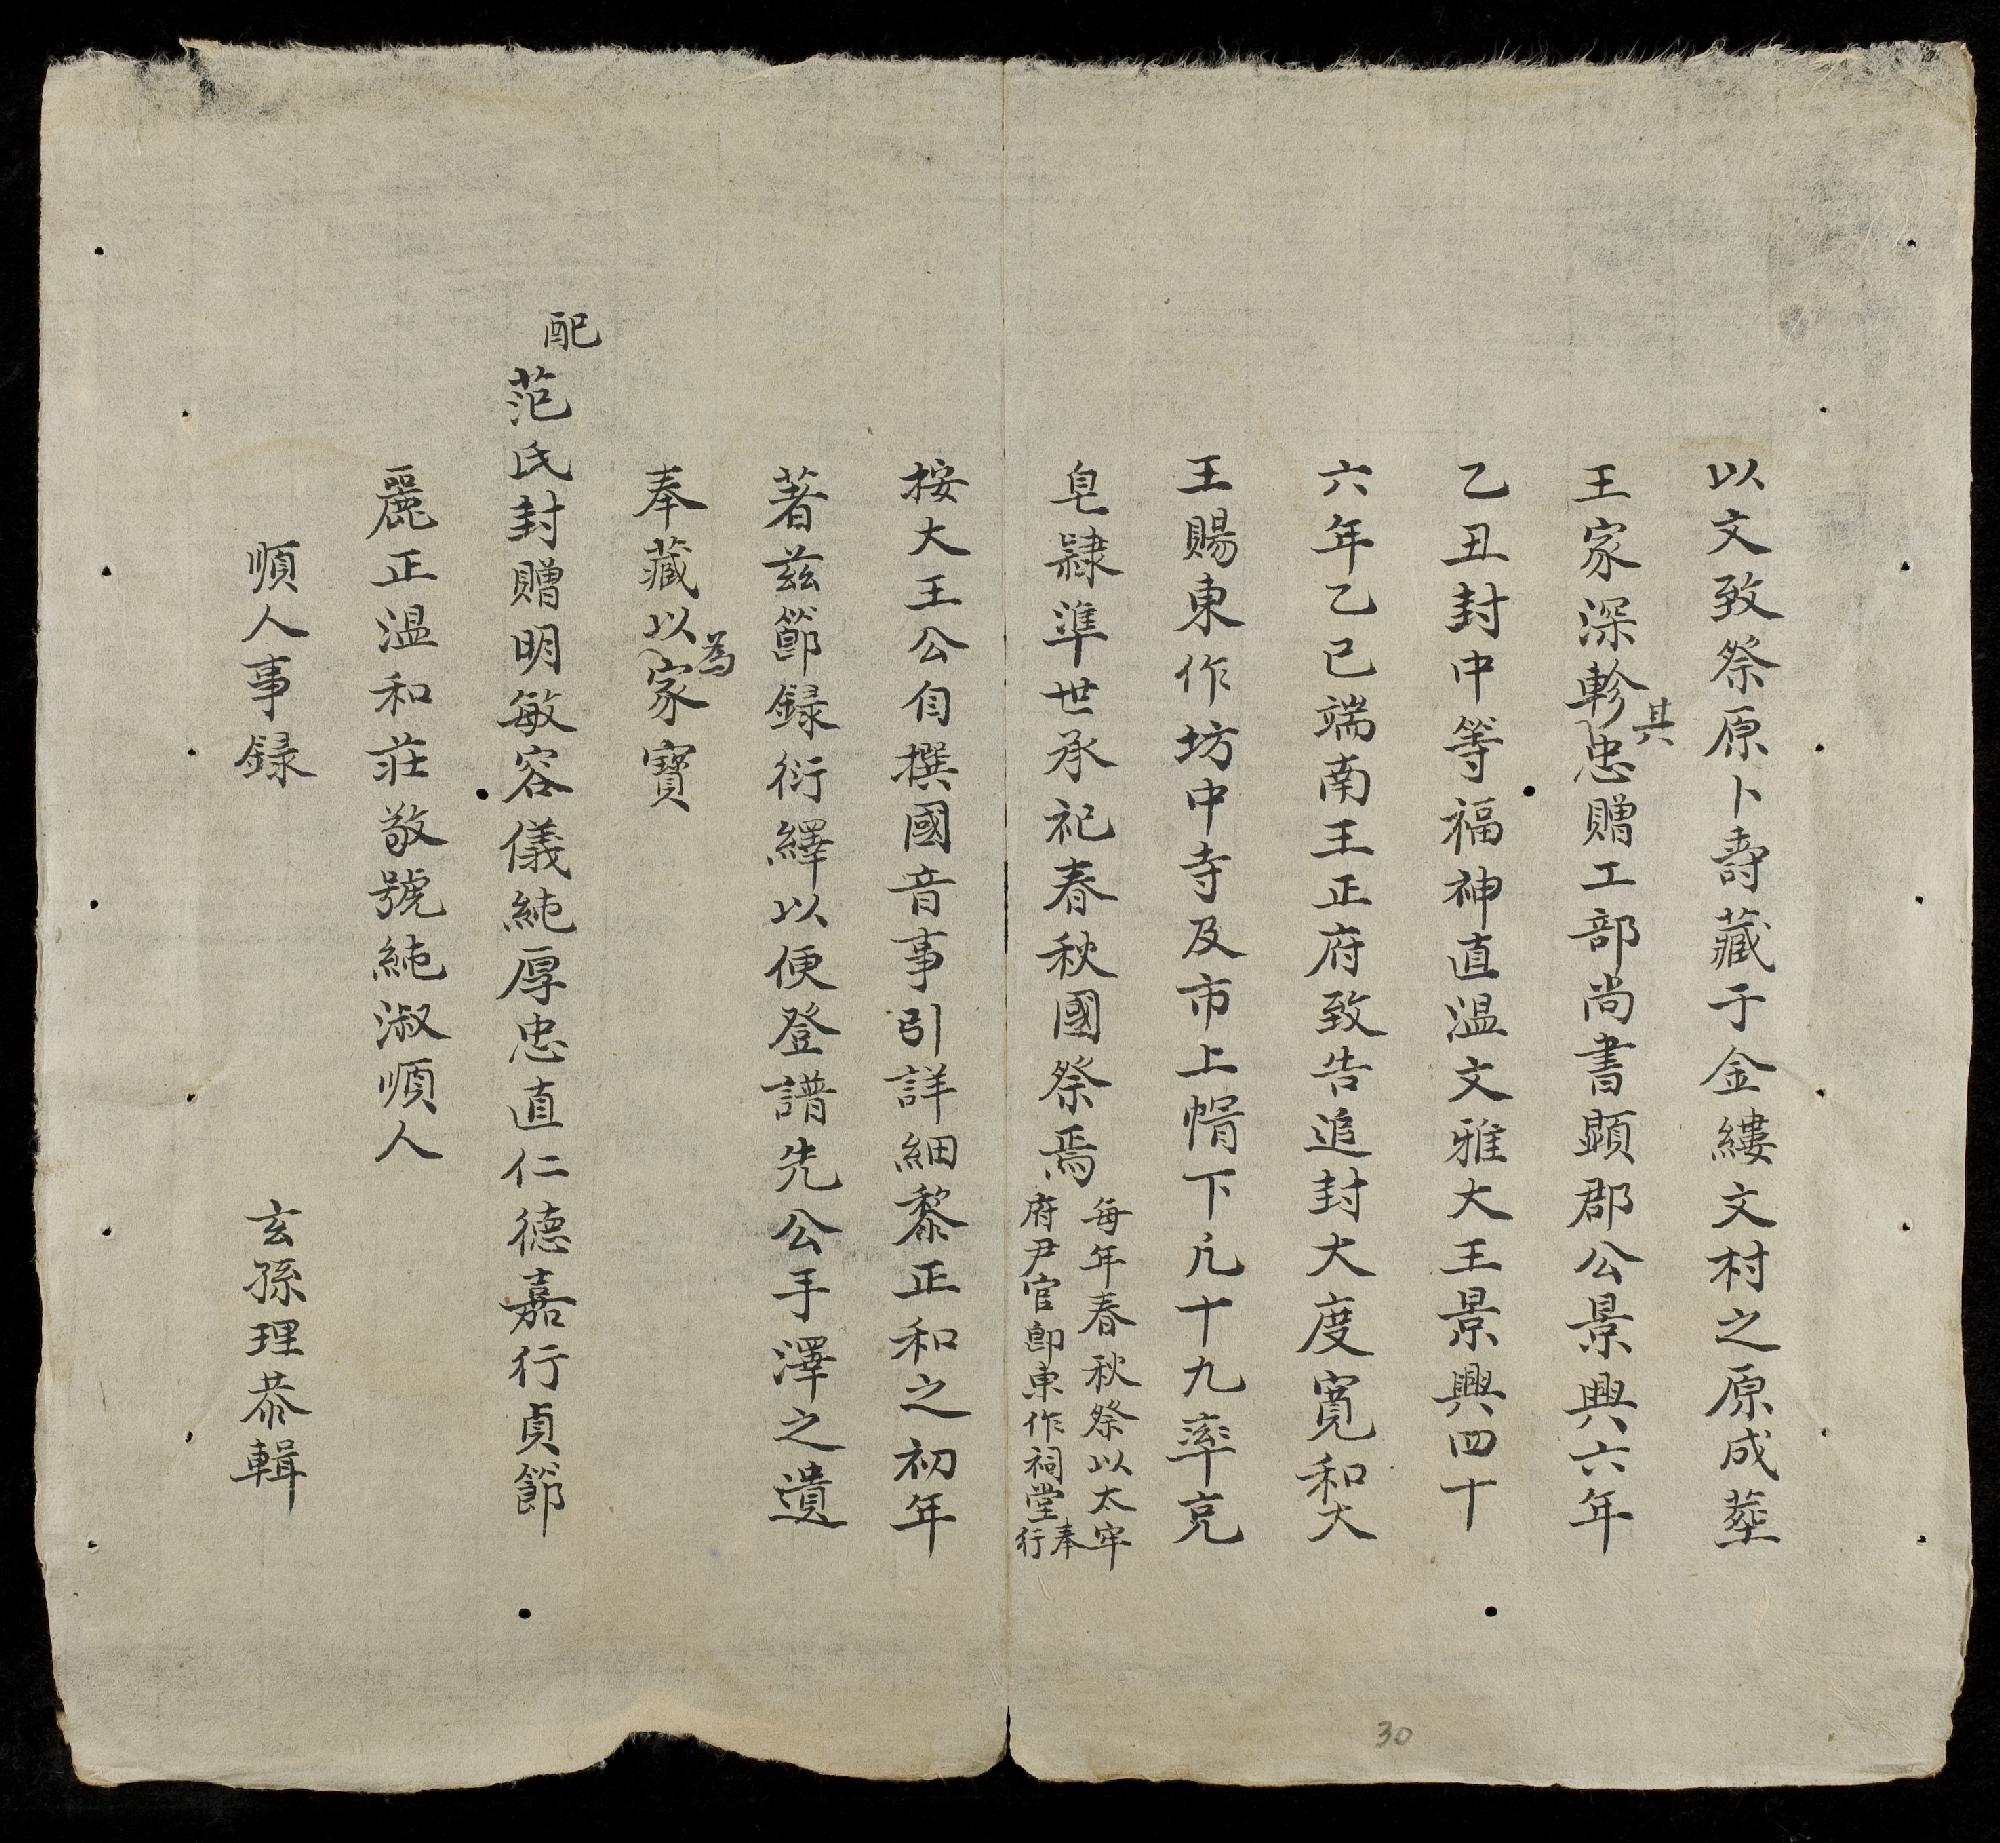 以文致祭原卜壽藏于金縷文村之原成葬
王家深軫其忠贈工部尚書顕郡公景興六年
乙丑封中等福神直温文雅大王景興四十
六年乙巳端南王正府致告追封大度寬和大
王賜東作坊中寺及市上帽下凢十九率充
皂隸準世承祀春秋國祭焉每年春秋祭以太牢府尹官即東作祠堂奉行
按大王公自撰國音事引詳細黎正和之初年
著兹節録衍繹以便登譜先公手澤之遺
奉藏以為家寶
配范氏封贈明敏容儀純厚忠直仁德嘉行貞節
麗正温和莊敬號純淑順人
順人事録 玄孫理恭輯
30